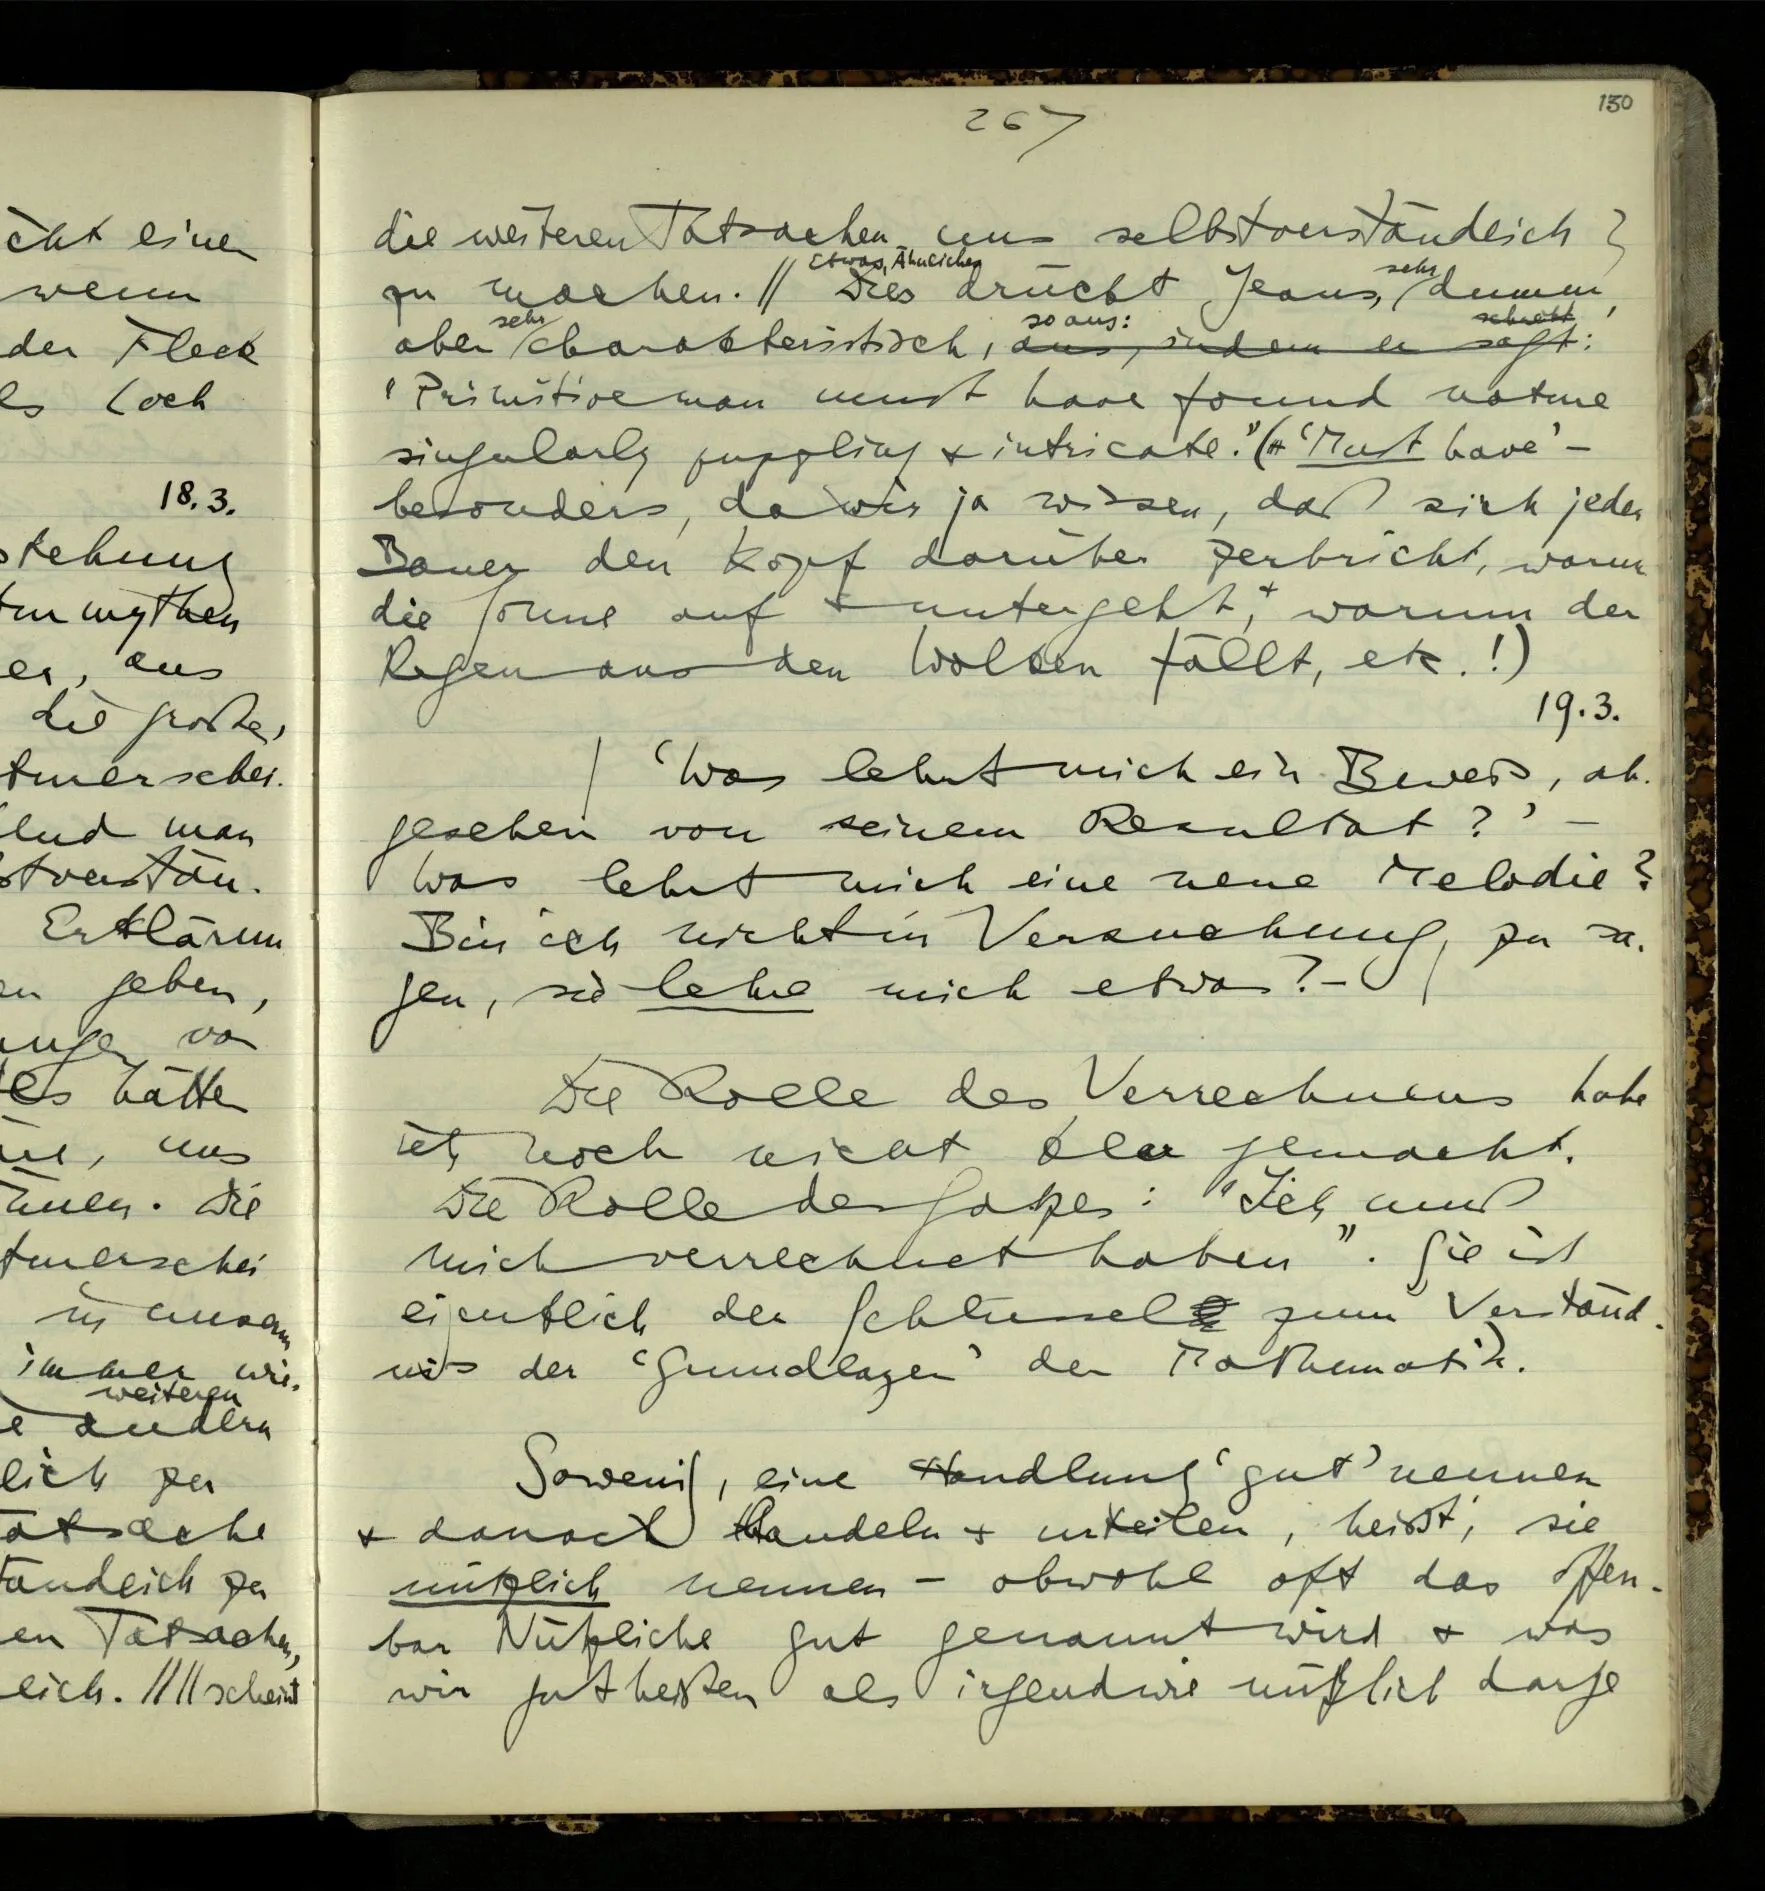 cht einen
wenn
der Fleck
es Loch
18.3.
stehung
turmythen
er, aus
die große,
turerschei-
lend man
stverstän-
Erklärun
en geben,
unge vo
es hätte
uns
nnen. Die
turerschei
in unserm
immer wie-
weiteren
e andern
lich zu
atsache
tändlich zu
en Tatsachen,
lich. //// scheint
267
130
die weiteren Tatsachen uns selbstverständlich
Etwas Ähnliches sehr
zu machen. // Dies drückt Jeans, dumm,
sehr so aus: schreibt
aber charakteristisch, aus, indem er sagt:
"Primitive man must have found nature
singularly puzzling & intricate." ('Must have' –
besonders, da wir ja wissen, daß sich jeder
Bauer den Kopf darüber zerbricht, warum
die Sonne auf & untergeht, warum der
Regen aus den Wolken fällt, etc.!)
19.3.
'Was lehrt mich ein Beweis, ab-
gesehen von seinem Resultat?' –
Was lehrt mich eine neue Melodie?
Bin ich nicht in Versuchung, zu sa-
gen, sie lehre mich etwas? –
Die Rolle des Verrechnens habe
ich noch nicht klar gemacht.
Die Rolle des Satzes: "Ich muß
mich verrechnet haben". Sie ist
eigentlich der Schlüssel zum Verständ-
nis der 'Grundlagen' der Mathematik.
Sowenig, eine Handlung 'gut' nennen
& danach handeln & urteilen, heißt, sie
nützlich nennen – obwohl oft das offen-
bar Nützliche gut genannt wird & was
wir gut heißen als irgendwie nützlich darge